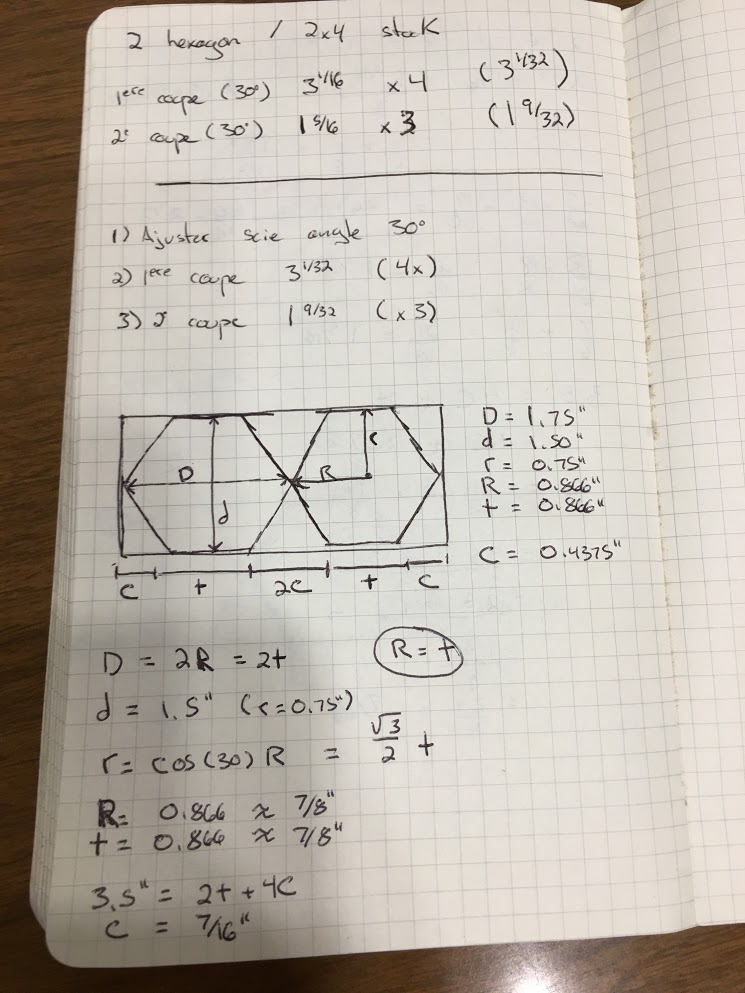 2 hexagon / 2x4 stock
1ere coupe (30°) 3 1/16 x 4 (3 1/32)
2e coupe (30°) 1 5/16 x 3 (1 9/32)
1) Ajuster scie angle 30°
2) 1ere coupe 3 1/32 (4x)
3) 2e coupe 1 9/32 (x3)
D = 1.75"
d = 1.50"
r = 0.75"
R = 0.866"
t = 0.866"
C = 0.4375"
D R r
d
C t 2C t C
D = 2R = 2t
R = t
d = 1.5" (r = 0.75")
r = cos(30) R = √3/2 t
R = 0.866 ≈ 7/8"
t = 0.866 ≈ 7/8"
3.5" = 2t + 4C
C = 7/16"